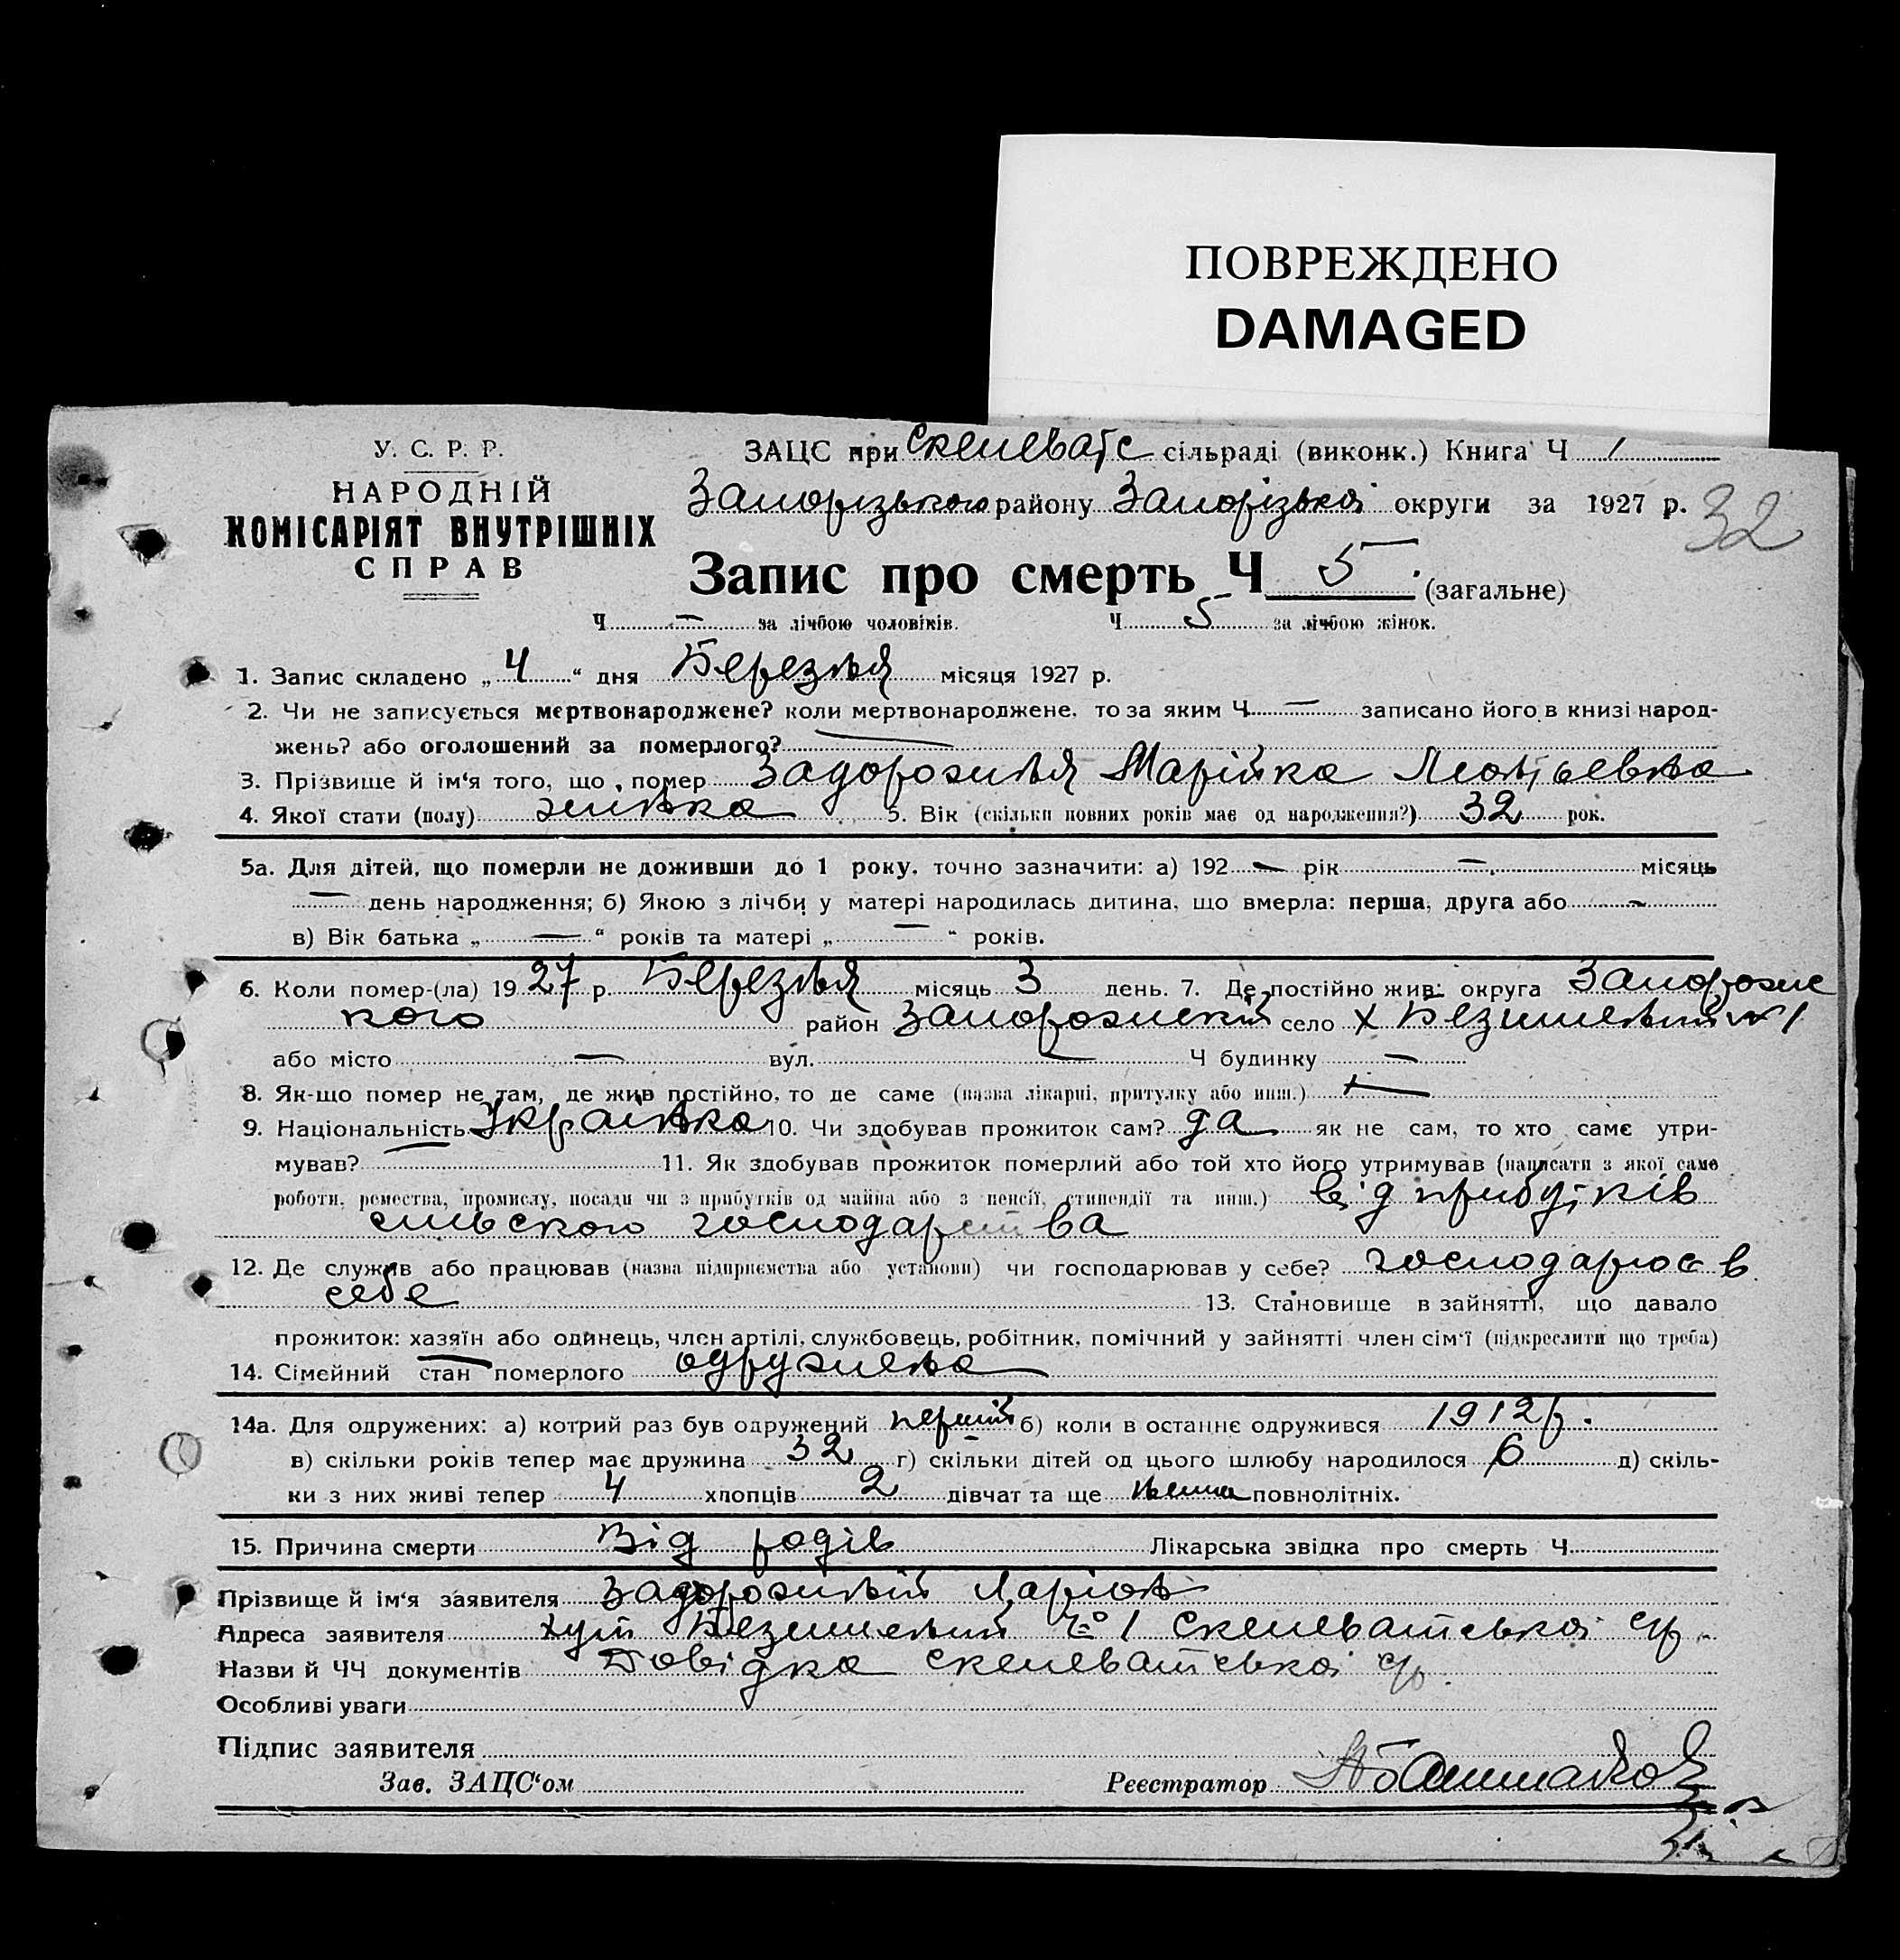 ПОВРЕЖДЕНО
DAMAGED
У. С. Р. Р.
НАРОДНІЙ
КОМІСАРІЯТ ВНУТРІШНІХ
СПРАВ
ЗАЦС при Скелеватс сільраді (виконк.) Книга Ч 1
Запорізького району Запорізької округи за 1927 р.
32
Запис про смерть Ч 5 (загальне)
Ч — за лічбою чоловіків. Ч 5 за лічбою жінок.
1. Запис складено „ 4 “ дня Березня місяця 1927 р.
2. Чи не записується мертвонароджене? коли мертвонароджене, то за яким Ч — записано його в книзі народ-
жень? або оголошений за померлого? —
3. Прізвище й ім‘я того, що помер Задорожня Марійка Леонтьевна
4. Якої стати (полу) жінка 5. Вік (скільки повних років має од народження?) 32 рок.
5а. Для дітей, що померли не доживши до 1 року, точно зазначити: а) 192 — рік — місяць
— день народження; б) Якою з лічби у матері народилась дитина, що вмерла: перша, друга або —
в) Вік батька „ — “ років та матері „ — “ років.
6. Коли помер-(ла) 19 27 р. Березня місяць 3 день. 7. Де постійно жив: округа Запорожс
кого район Запорожский село х
або місто — вул. — Ч будинку —
8. Як-що помер не там, де жив постійно, то де саме (назва лікарні, притулку або инш.) —
9. Національність Українка 10. Чи здобував прожиток сам? да як не сам, то хто саме утри-
мував? — 11. Як здобував прожиток померлий або той хто його утримував (написати з якої саме
роботи, ремества, промислу, посади чи з прибутків од майна або з пенсії, стипендії та инш.) від прибутків
сильского господарства
12. Де служив або працював (назва підприємства або установи) чи господарював у себе? господарює в
себе 13. Становище в зайнятті, що давало
прожиток: хазяїн або одинець, член артілі, службовець, робітник, помічний у зайнятті член сім‘ї (підкреслити що треба)
14. Сімейний стан померлого одружена
14а. Для одружених: а) котрий раз був одружений перший б) коли в останнє одружився 1912 р.
в) скільки років тепер має дружина 32 г) скільки дітей од цього шлюбу народилося 6 д) скіль-
ки з них живі тепер 4 хлопців 2 дівчат та ще нема повнолітніх.
15. Причина смерти Від родів Лікарська звідка про смерть Ч
Прізвище й ім‘я заявителя Задорожній Ларіон
Адреса заявителя хут № 1 Скелеватської с/р
Назви й ЧЧ документів Довідка Скелеватської с/р.
Особливі уваги
Підпис заявителя
Зав. ЗАЦС‘ом Реєстратор